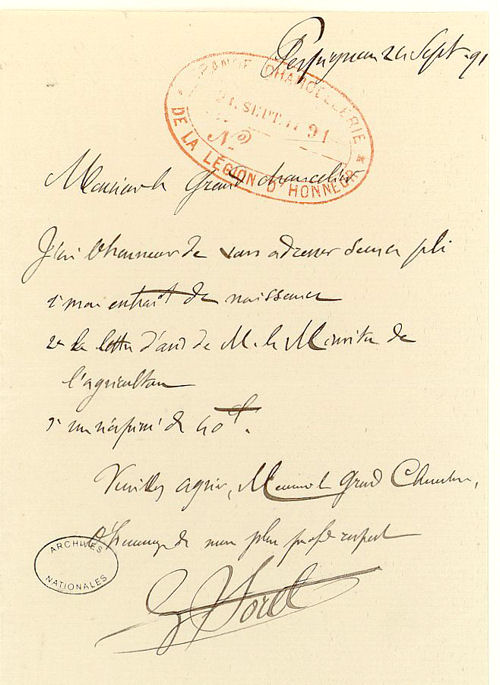 Perpignan 24 Sept. 91
GRANDE CHANCELLERIE
SEPT. 91
No
DE LA LÉGION D'HONNEUR
Monsieur le Grand Chancelier
J'ai l'honneur de vous adresser sous ce pli
1° mon extrait de naissance
2° la lettre d'avis de M. le Ministre de
l'agriculture
3° un récépissé de 40 f.
Veuillez agréer, Monsieur le Grand Chancelier,
l'hommage de mon plus profond respect
G Sorel
ARCHIVES
NATIONALES